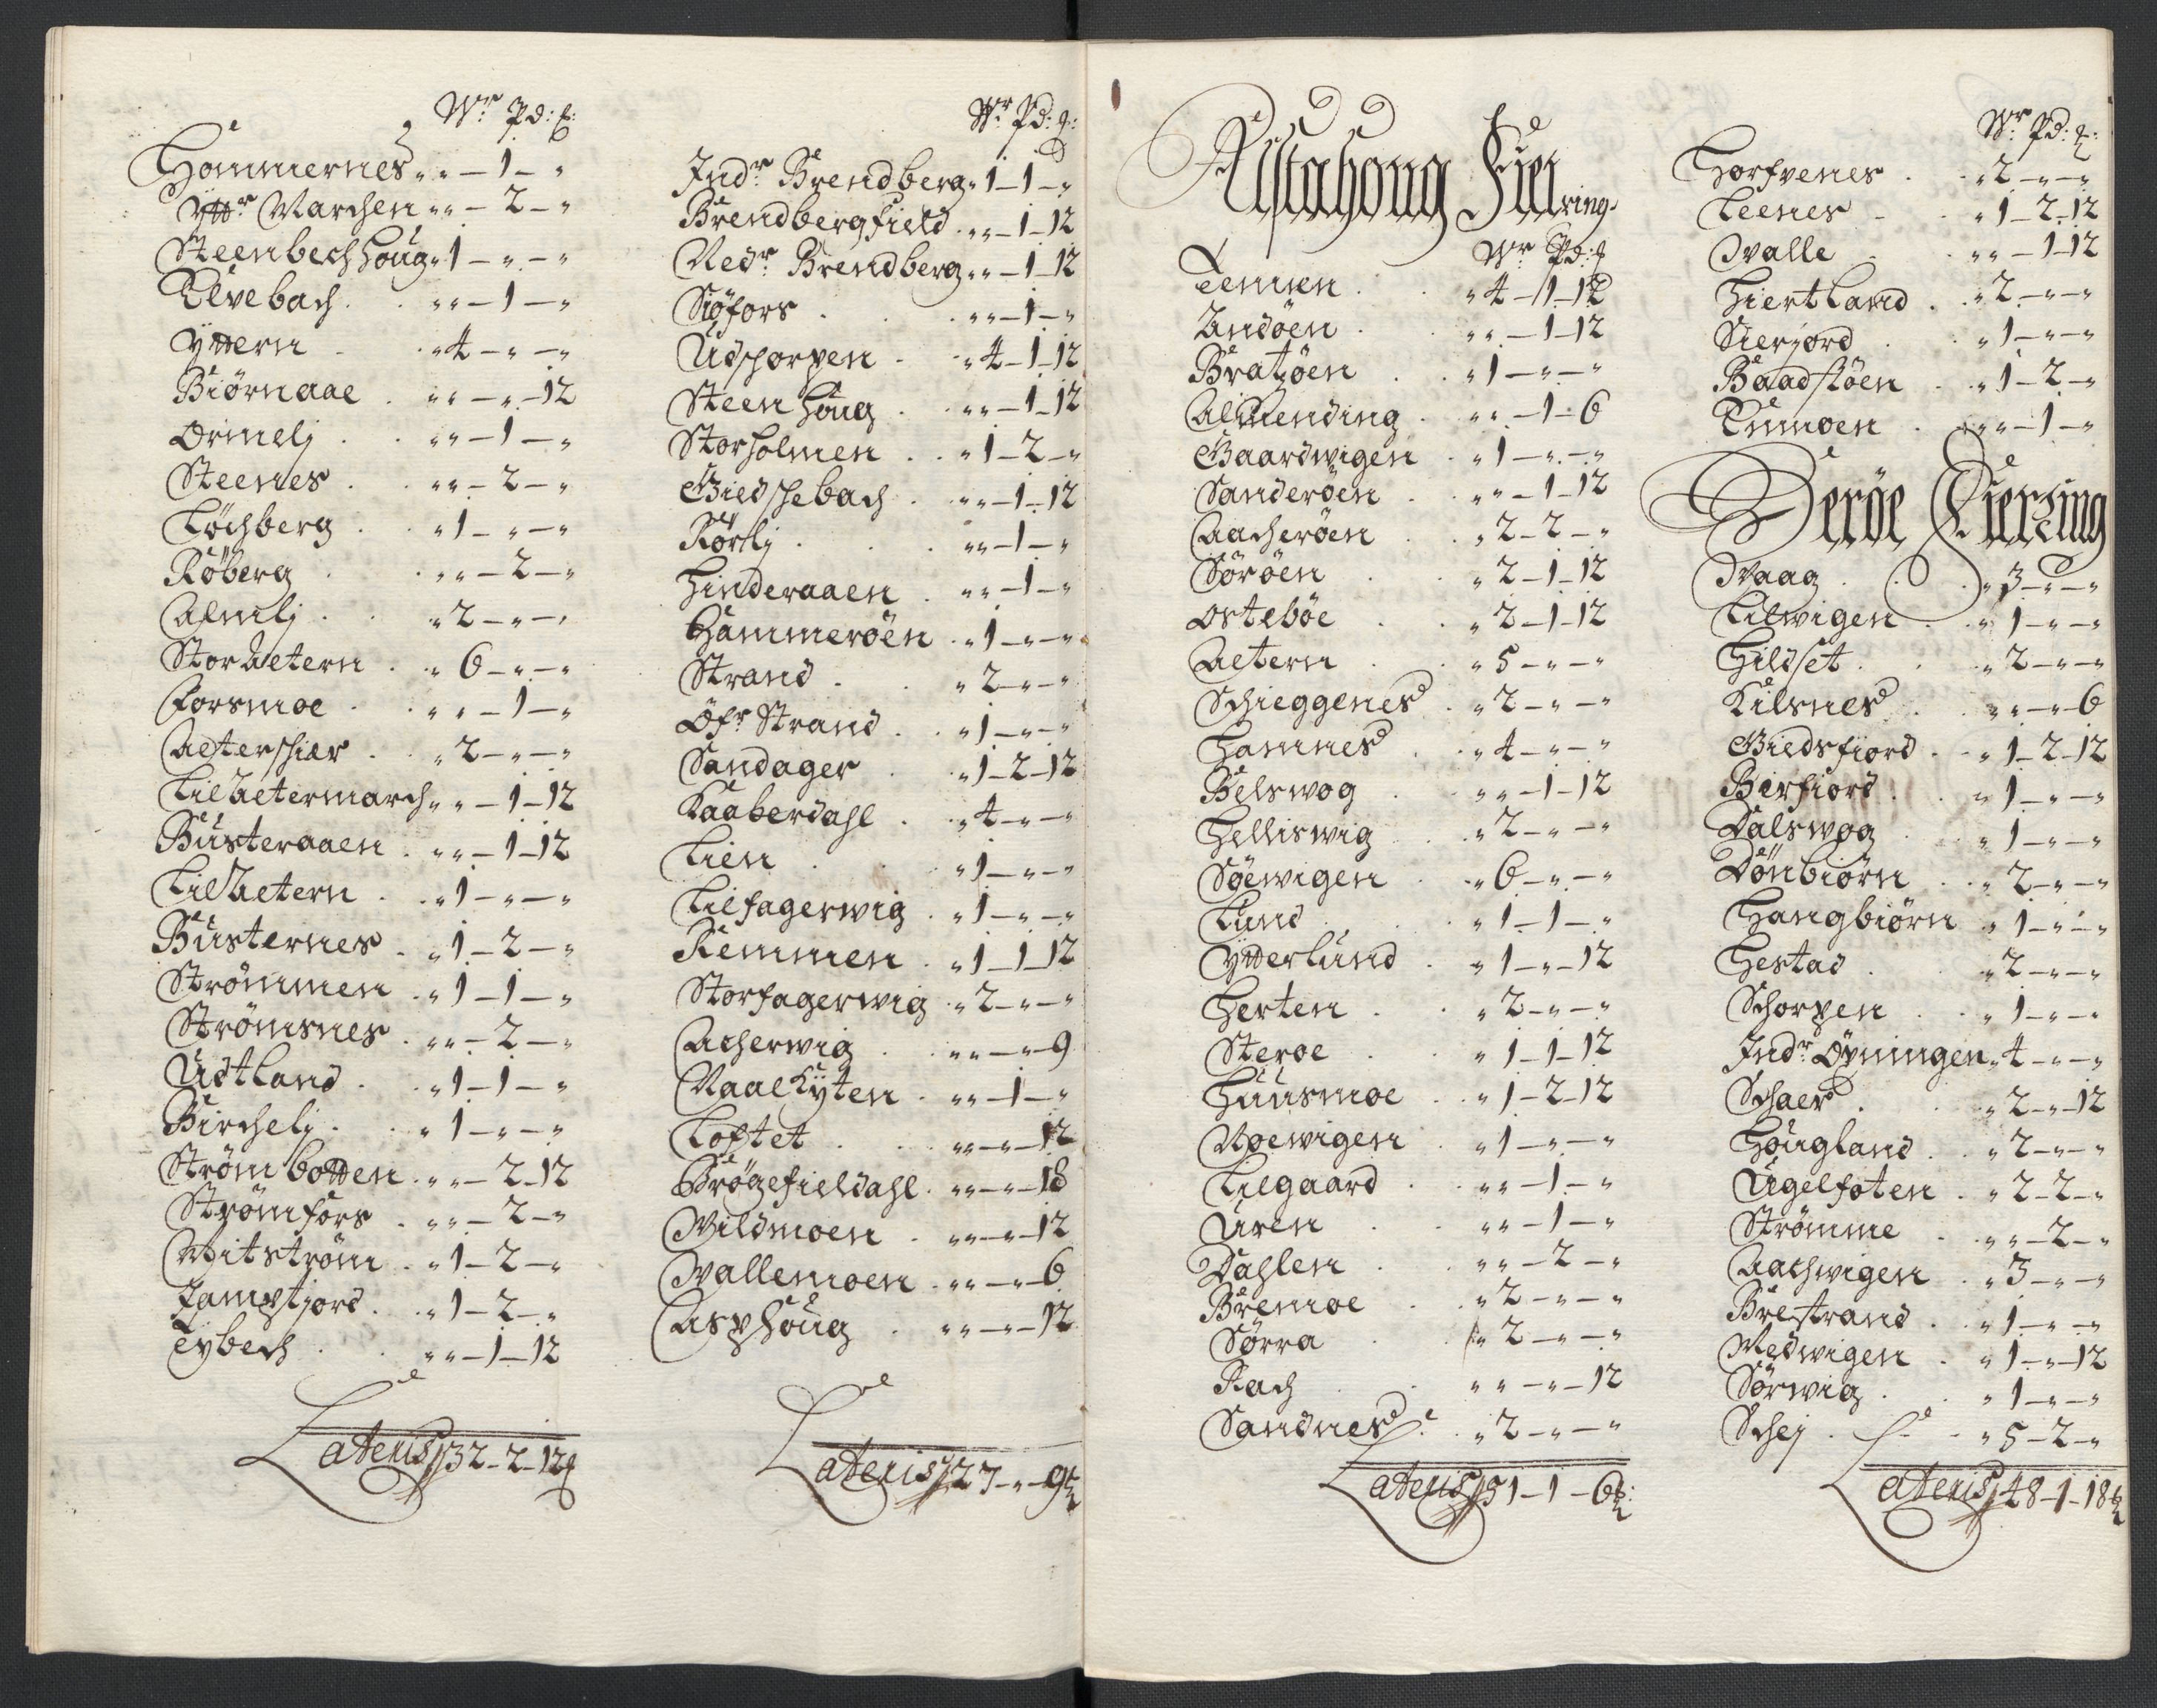 Wr Pd: £:
Hammernes „ „ – 1 – „
Yttr Marchen „ „ – 2 – „
Steenbechhoug „ 1 – „ – „
Elvebach . . „ „ – 1 – „
Yttern . . „ 4 – „ – „
Biörnaae . „ „ – „ – 12
Ormelj . . „ „ – 1 – „
Steenes . . „ „ – 2 – „
Löchberg . „ 1 – „ – „
Röberg . . „ „ – 2 – „
Almlj . . „ 2 – „ – „
Stor Aetern . „ 6 – „ – „
Forsmoe . „ „ – 1 – „
Aeterschier . „ 2 – „ – „
Lil Aetermarch „ „ – 1 – 12
Busteraaen . „ „ – 1 – 12
Lil Aetern . „ 1 – „ – „
Busternes . „ 1 – 2 – „
Strömmen . „ 1 – 1 – „
Strömsnes . „ „ – 2 – „
Udtland . „ 1 – 1 – „
Birchelj . „ 1 – „ – „
Strömbotten . „ „ – 2 – 12
Strömfors . „ „ – 2 – „
Mitström . „ 1 – 2 – „
. „ 1 – 2 – „
Lybech . . „ „ – 1 – 12
Lateris 32 – 2 – 12
Wr Pd: £:
Indr Brendberg „ 1 – 1 – „
Brendbergfield . „ „ – 1 – 12
Nedr Brendberg „ „ – 1 – 12
Siöfors . . „ „ – 1 – „
Udschorpen . „ 4 – 1 – 12
Steenhoug . „ „ – 1 – 12
Storholmen . . „ 1 – 2 – „
Giedschebach . „ „ – 1 – 12
Rörlj . . „ „ – 1 – „
Hinderaaen . „ „ – 1 – „
Hammeröen . „ 1 – „ – „
Strand . . „ 2 – „ – „
Öfr Strand . „ 1 – „ – „
Sandager . „ 1 – 2 – 12
Kaaberdahl . „ 4 – „ – „
Lien . . „ 1 – „ – „
Lilfagerwig . „ 1 – „ – „
Remmen . „ 1 – 1 – 12
Storfagerwig . „ 2 – „ – „
Acherwig . „ „ – „ – 9
Naalkyten . „ „ – 1 – „
Loftet . . „ „ – „ – 12
Brögefieldahl . „ „ – „ – 18
Wildmoen . „ „ – „ – 12
Wallemoen . „ „ – „ – 6
Asphoug . „ „ – „ – 12
Lateris 27 – „ – 9
Alstahoug Fiering
Wr Pd: £
Lemen . „ 4 – 1 – 12
Andöen . „ „ – 1 – 12
Bratzöen . „ 1 – „ – „
Almending . „ „ – 1 – 6
Baardwigen . „ 1 – „ – „
Sanderöen . „ „ – 1 – 12
Aacheröen . „ 2 – 2 – „
Söröen . „ 2 – 1 – 12
Osteböe . „ 2 – 1 – 12
Aetern . „ 5 – „ – „
Schieggenes . „ 2 – „ – „
Hamnes . „ 4 – „ – „
Belswog . „ „ – 1 – 12
Helliswig . „ 2 – „ – „
Söewigen . „ 6 – „ – „
Lund . „ 1 – 1 – „
Ytterlund . „ 1 – „ – 12
Herten . . „ 2 – „ – „
Steroe . „ 1 – 1 – 12
Huusmoe . „ 1 – 2 – 12
Roewigen . „ 1 – „ – „
Lilgaard . „ „ – 1 – „
Uren . „ „ – 1 – „
Dahlen . „ „ – 2 – „
Bremoe . „ 2 – „ – „
Sörra . „ 2 – „ – „
Aach . „ „ – „ – 12
Sandnes . „ 2 – „ – „
Lateris 51 – 1 – 6
Wr Pd: £:
Horfvenes . „ 2 – „ – „
Leenes . „ 1 – 2 – 12
Walle . „ „ – 1 – 12
Hiertland . „ 2 – „ – „
Sierjord . „ 1 – „ – „
Baadstöen . „ 1 – 2 – „
Tummoen . „ „ – 1 – „
Heröe Fiering
Waag . . „ 3 – „ – „
Lilwigen . „ 1 – „ – „
Hildset . . „ 2 – „ – „
Kilsnes . „ „ – „ – 6
Giedsfiord . „ 1 – 2 – 12
Birfiord . „ 1 – „ – „
Dalswog . „ 1 – „ – „
Dönbiörn . „ 2 – „ – „
Hangbiörn „ 1 – „ – „
Hestad . „ 2 – „ – „
Schorpen . „ 1 – „ – „
Indr Öpningen „ 4 – „ – „
Schaer . „ 2 – „ – 12
Hougland . „ 2 – „ – „
Ugelfoten . „ 2 – 2 – „
Strömme . „ „ – 2 – „
Aachwigen . „ 3 – „ – „
Brestrand . „ 1 – „ – „
Medwigen . „ 1 – „ – 12
Sörwig . „ 1 – „ – „
Schej . „ 5 – 2 – „
Lateris 48 – 1 – 18